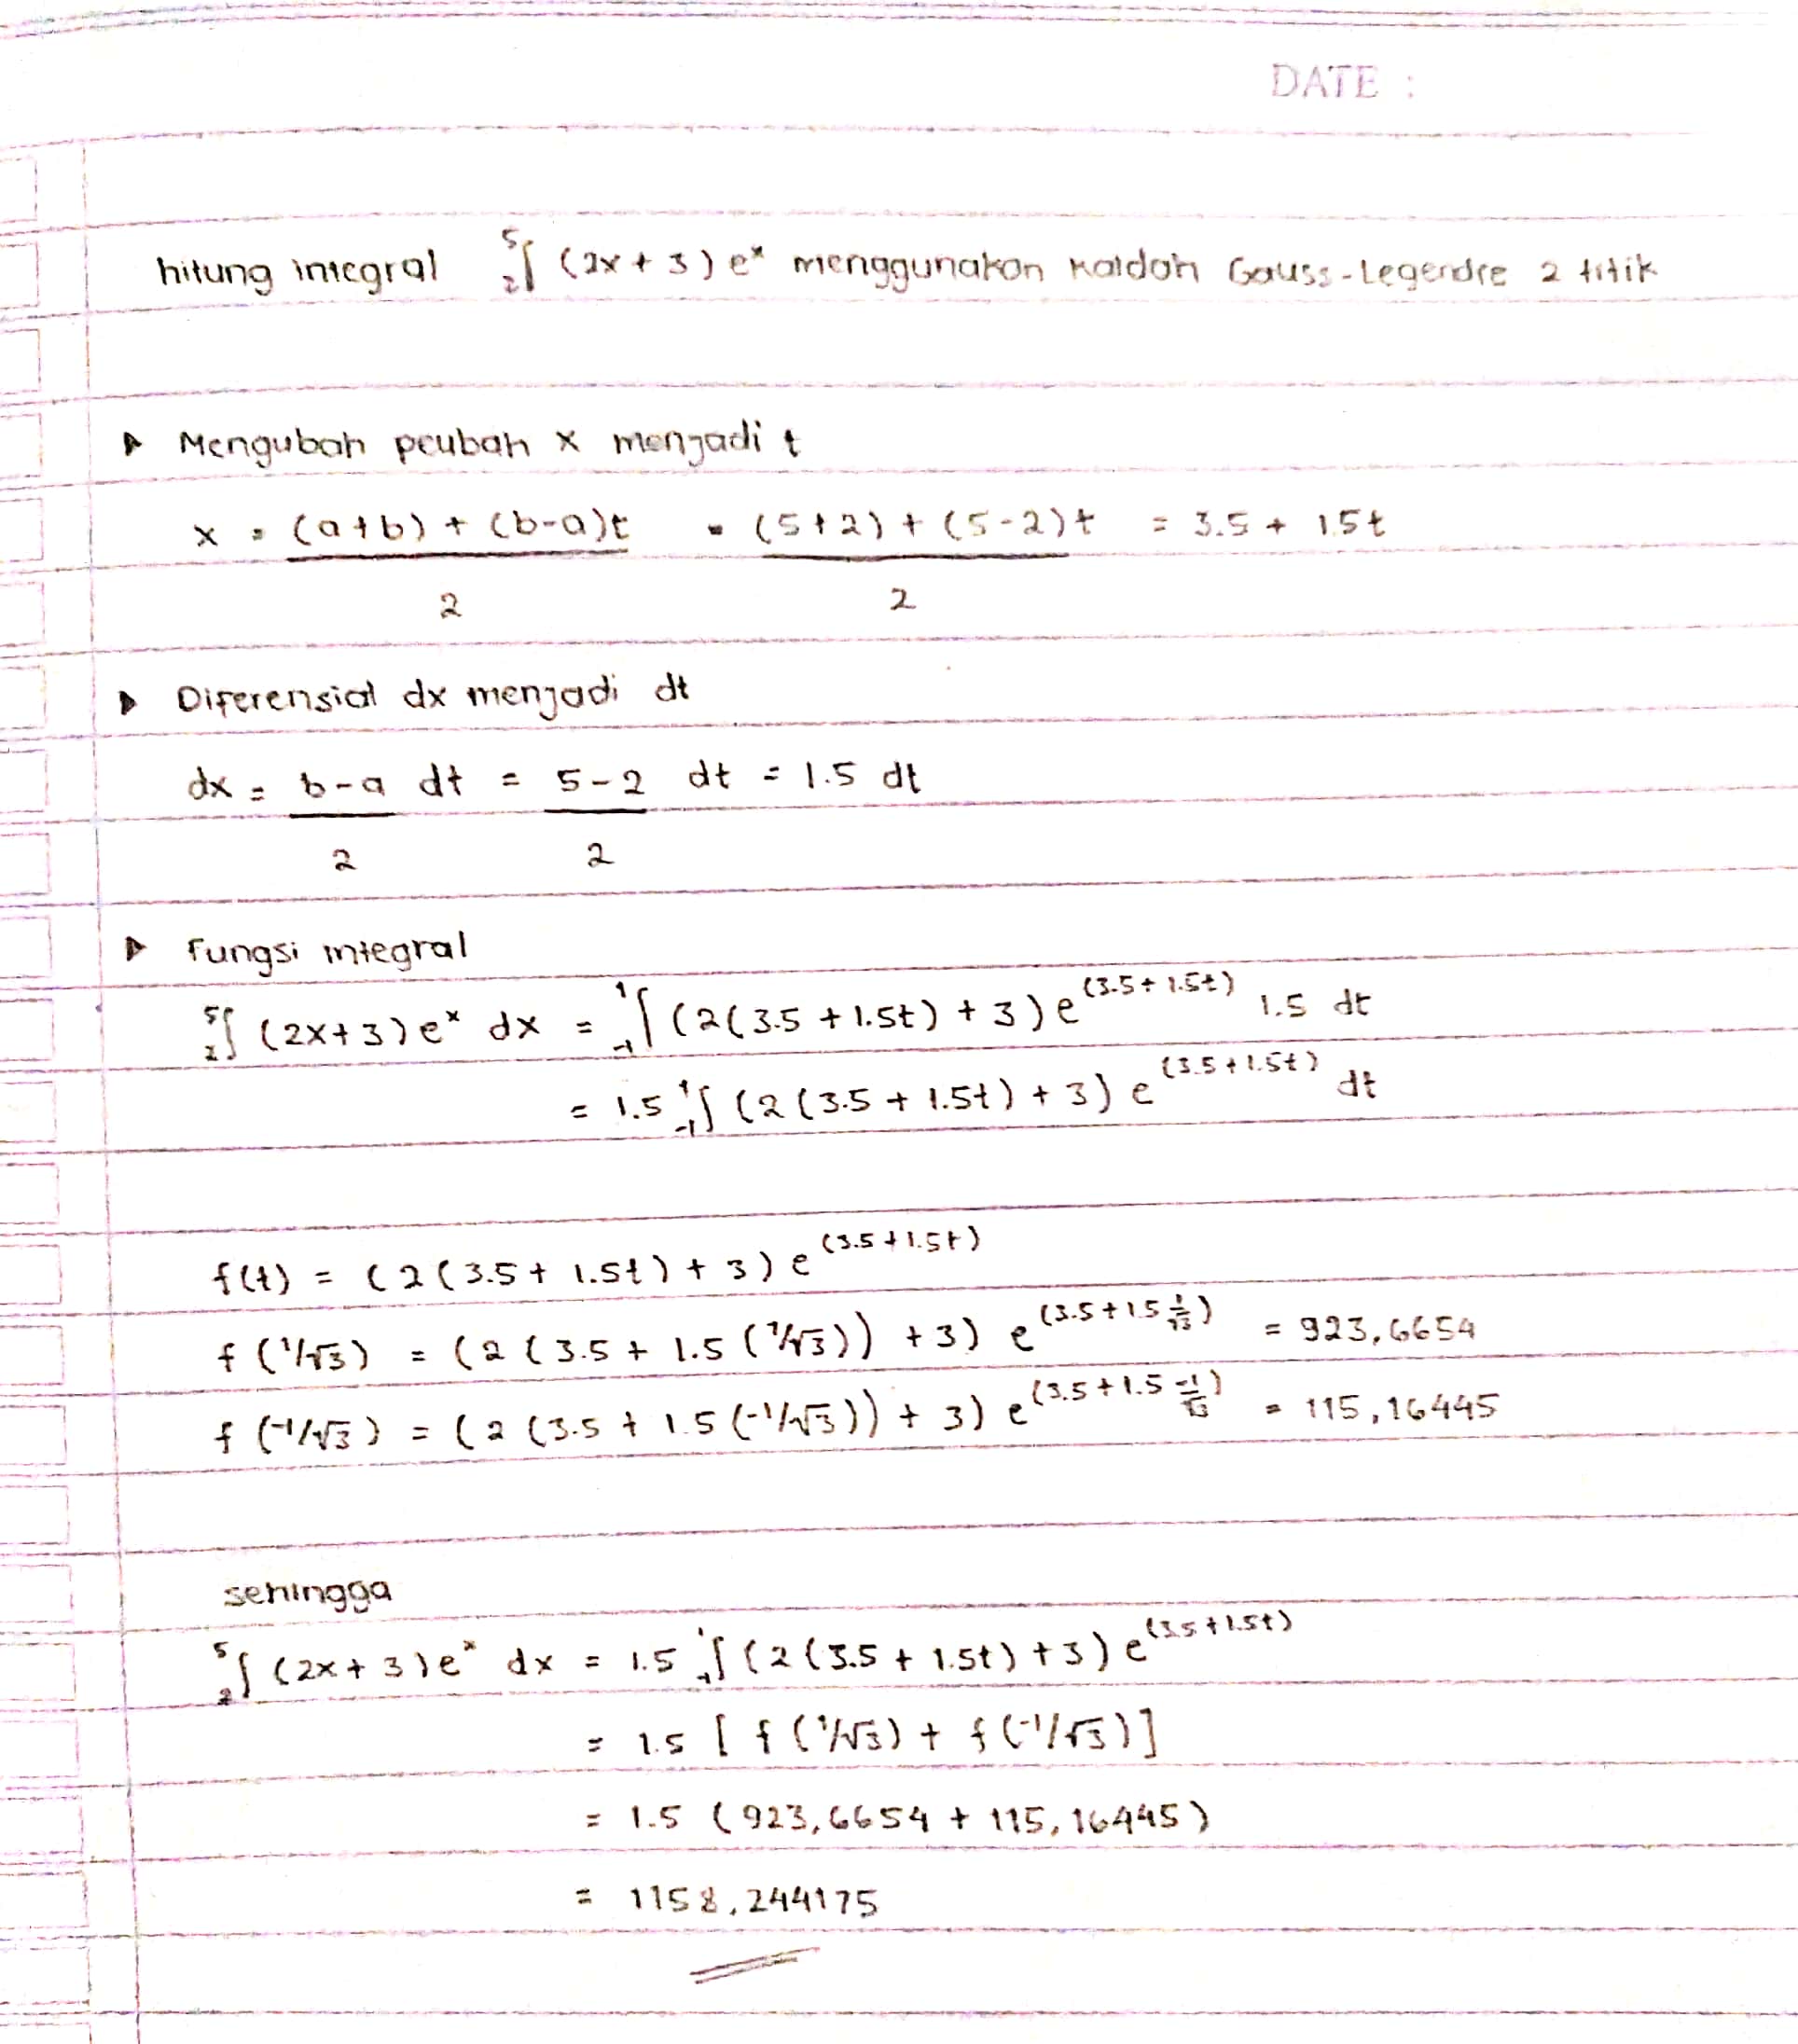 DATE :
hitung integral ₂⁵∫ (2x + 3) eˣ menggunakan kaidah Gauss-Legendre 2 titik
▶ Mengubah peubah x menjadi t
x = (a+b) + (b-a)t = (5+2) + (5-2)t = 3.5 + 1.5t
2 2
▶ Diferensial dx menjadi dt
dx = b-a dt = 5-2 dt = 1.5 dt
2 2
▶ Fungsi integral
₂⁵∫ (2x+3) eˣ dx = ₋₁¹∫ (2(3.5 + 1.5t) + 3) e^(3.5+1.5t) 1.5 dt
= 1.5 ₋₁¹∫ (2(3.5 + 1.5t) + 3) e^(3.5+1.5t) dt
f(t) = (2(3.5 + 1.5t) + 3) e^(3.5+1.5t)
f(1/√3) = (2(3.5 + 1.5(1/√3)) + 3) e^(3.5+1.5 1/√3) = 923,6654
f(-1/√3) = (2(3.5 + 1.5(-1/√3)) + 3) e^(3.5+1.5 -1/√3) = 115,16445
sehingga
₂⁵∫ (2x+3)eˣ dx = 1.5 ₋₁¹∫ (2(3.5 + 1.5t) + 3) e^(3.5+1.5t)
= 1.5 [ f(1/√3) + f(-1/√3)]
= 1.5 (923,6654 + 115,16445)
= 1158,244175